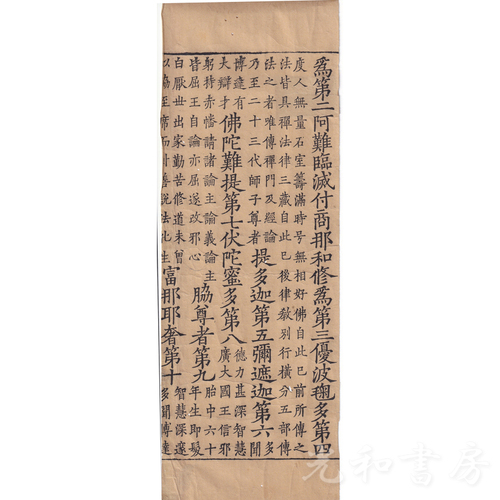 爲第二阿難臨滅付商那和修爲第三優波毱多第四
度人無量石室籌滿時号無相好佛自此已前所傳之
法皆具禪法律三藏自此已後律教別行橫分五部傳
法之者唯傳禪門及經論
乃至二十三代師子尊者
提多迦第五彌遮迦第六
多
聞
博達有
大辯才
佛陀難提第七伏陀蜜多第八
德力甚深智慧
廣大國王信邪
躬持赤幡請諸論主論義論主
皆屈王自論亦屈遂改邪心
脇尊者第九
胎中六十
年生即髮
白厭世出家勤苦修道未曾
以脇至席而計善說法化生
富那耶奢第十
智慧深邃
多聞博達
元和書房